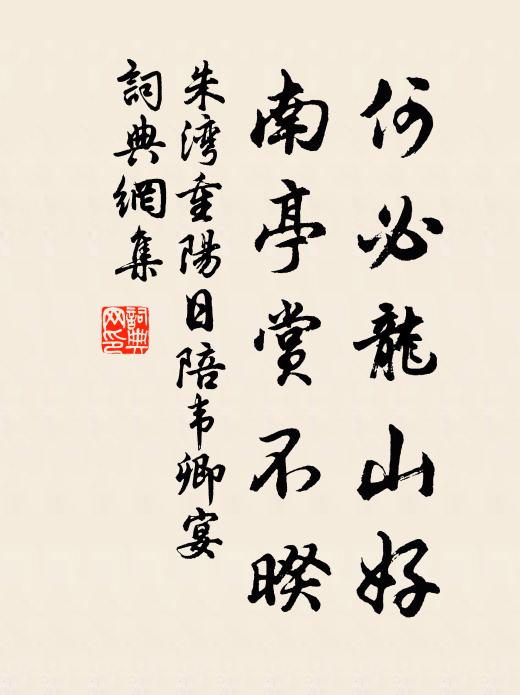 何必龍山好
南亭賞不暌
朱湾重陽日陪韦卿宴
詞典網集
詞典
网印